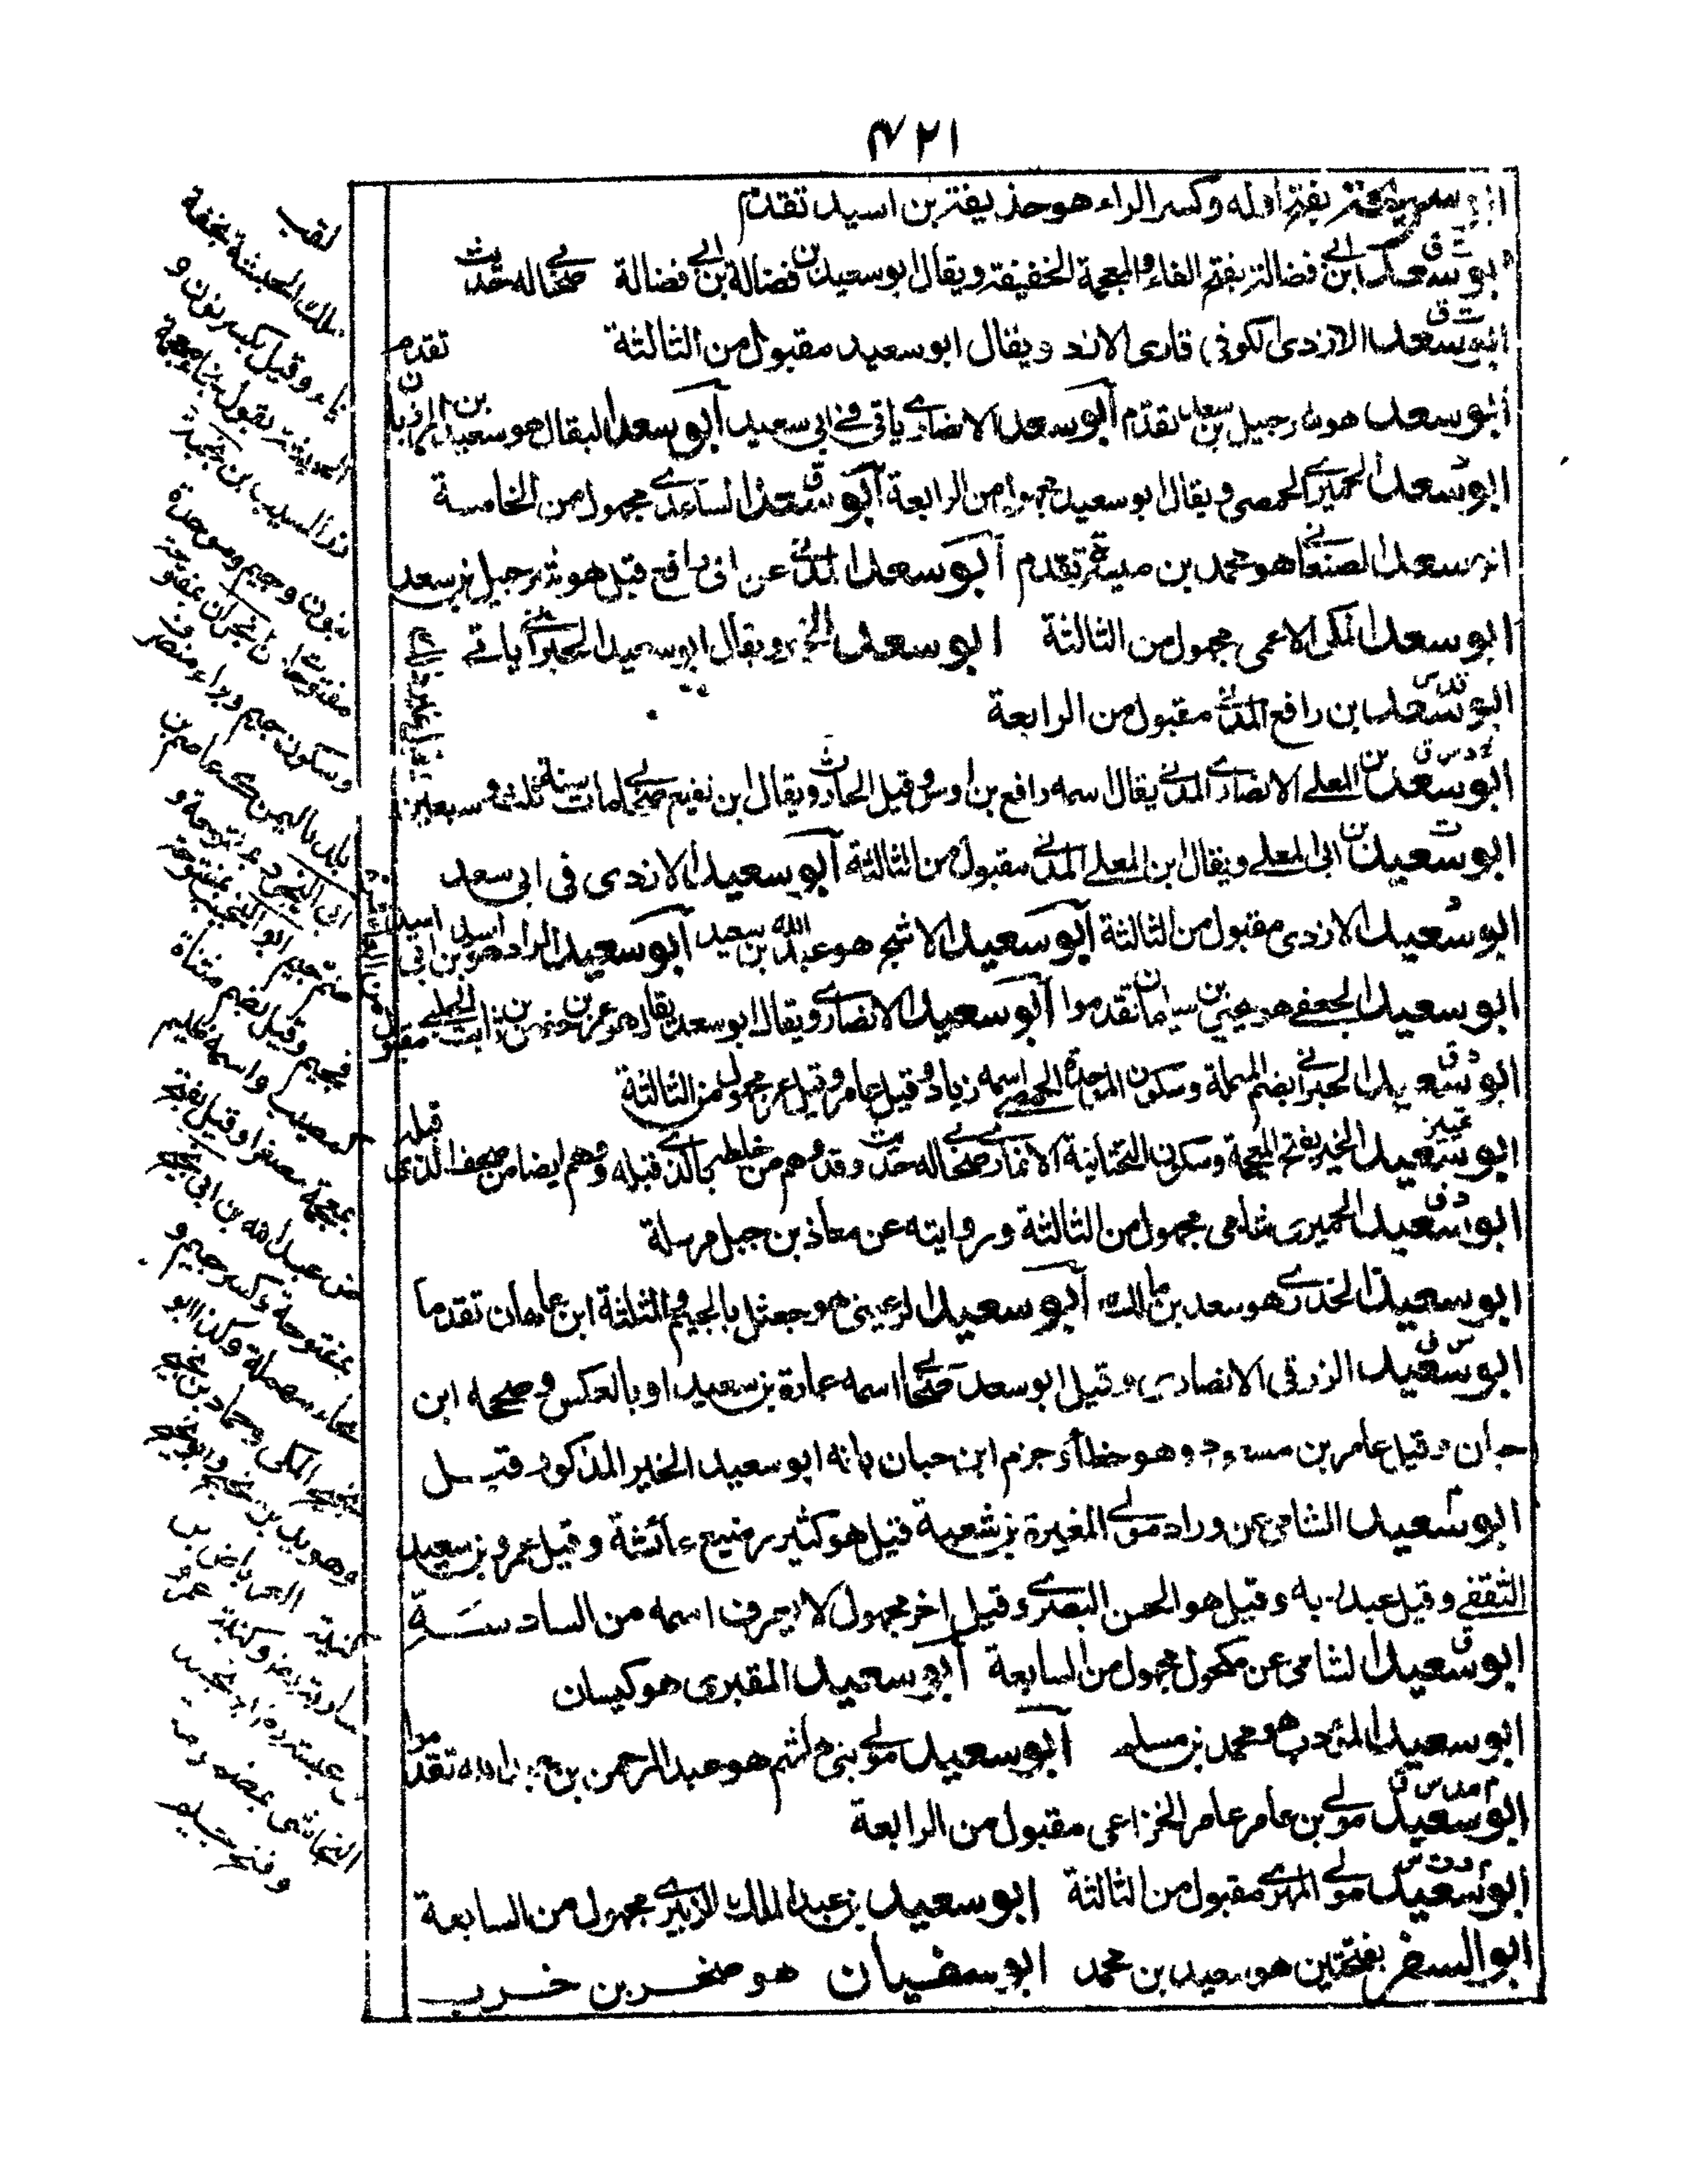 ۴۲۱
ابو سريحة بفتح اوله وكسر الراء هو حذيفة بن اسيد تقدم
ابو سعد ابن ابي فضالة بفتح الفاء والمعجمة الخفيفة ويقال ابو سعيد بن فضالة بن ابي فضالة صحابي له حديث
ت ق
ابو سعد الازدى الكوفي قارى الازد ويقال ابو سعيد مقبول من الثالثة
ت ق
ابو سعد هو شرحبيل بن سعد تقدم ابو سعد الانصاري ياتي في ابي سعيد ابو سعد البقال هو سعيد بن المرزبان تقدم
ابو سعد الحميري الحمصي ويقال ابو سعيد مجهول من الرابعة ابو سعد الساعدي مجهول من الخامسة
ابو سعد الصنعاني هو محمد بن ميسر تقدم ابو سعد المدني عن ابي رافع قيل هو شرحبيل بن سعد
ابو سعد المكى الاعمى مجهول من الثالثة ابو سعد الخير ويقال ابو سعيد الحبراني ياتي
ابو سعد بن رافع المدني مقبول من الرابعة
خ د س ق
ابو سعيد بن المعلى الانصاري المدني يقال اسمه رافع بن اوس وقيل الحارث ويقال ابن نفيع صحابي مات سنة ثلث وسبعين
ت
ابو سعيد بن ابى المعلى ويقال ابن المعلى المدني مقبول من الثالثة ابو سعيد الازدى فى ابى سعد
ابو سعيد الازدى مقبول من الثالثة ابو سعيد الاشج هو عبد الله بن سعيد ابو سعيد البراد هو اسيد بن ابي اسيد
ابو سعيد الجعفي هو يحيى بن سليمان تقدموا ابو سعيد الانصاري ويقال ابو سعد يقال هو عمر بن حفص بن ثابت الحلبي مقبول من العاشرة
د ق
ابو سعيد الحبراني بضم المهملة وسكون الموحدة الحمصي اسمه زياد وقيل عامر وقيل عمر مجهول من الثالثة
تمييز
ابو سعيد الخير بفتح المعجمة وسكون التحتانية الانماري صحابي له حديث وقد وهم من خلطه بالذي قبله ووهم ايضا من صحف الذى قبله
د ق
ابو سعيد الحميرى شامى مجهول من الثالثة وروايته عن معاذ بن جبل مرسلة
ابو سعيد الخدري هو سعد بن مالك ابو سعيد الرعينى هو جعثل بالجيم والمثلثة ابن هاعان تقدما
س ق
ابو سعيد الزرقى الانصارى وقيل ابو سعد صحابي اسمه عمارة بن سعيد او بالعكس وصححه ابن
حبان وقيل عامر بن مسعود وهو خطأ وجزم ابن حبان بانه ابو سعيد الخير المذكور قبل
م
ابو سعيد الشامى عن وراد مولي المغيرة بن شعبة قيل هو كثير رضيع عائشة وقيل عمرو بن سعيد
الثقفي وقيل عبد ربه وقيل هو الحسن البصري وقيل اخر مجهول لا يعرف اسمه من السادسة
ق
ابو سعيد الشامى عن مكحول مجهول من السابعة ابو سعيد المقبرى هو كيسان
ابو سعيد المؤدب هو محمد بن مسلم ابو سعيد مولي بنى هاشم هو عبد الرحمن بن عبد الله تقدموا
م مد س ق
ابو سعيد مولي بن عامر عامر الخزاعى مقبول من الرابعة
م د ت س
ابو سعيد مولي المهري مقبول من الثالثة ابو سعيد بن عبد الملك الزبيري مجهول من السابعة
ابو السفر بفتحتين هو سعيد بن محمد ابو سفيان هو صخر بن حرب
لقب
ملك الحبشة بخفة
ياء وقيل بكسر نون و
بنون وجيم وموحدة
مفتوحات نجران بمفتوحة
وسكون جيم وبراء منصرف
بلد باليمن عاصم بن
ابى النجود بمفتوحة و
ضم جيم ابو النجيب بمفتوحة
فجيم وقيل بضم مثناة
معجمة مصغرا وقيل بفتح
عبد الله بن ابى نجيح
بمفتوحة وكسر جيم و
بحاء مهملة وكذا ابو
نجيح المكى وحماد بن نجيح
كنية العرباض بن
سارية رضى وكنية عمرو
بن عبسة رضى ابو نجيد